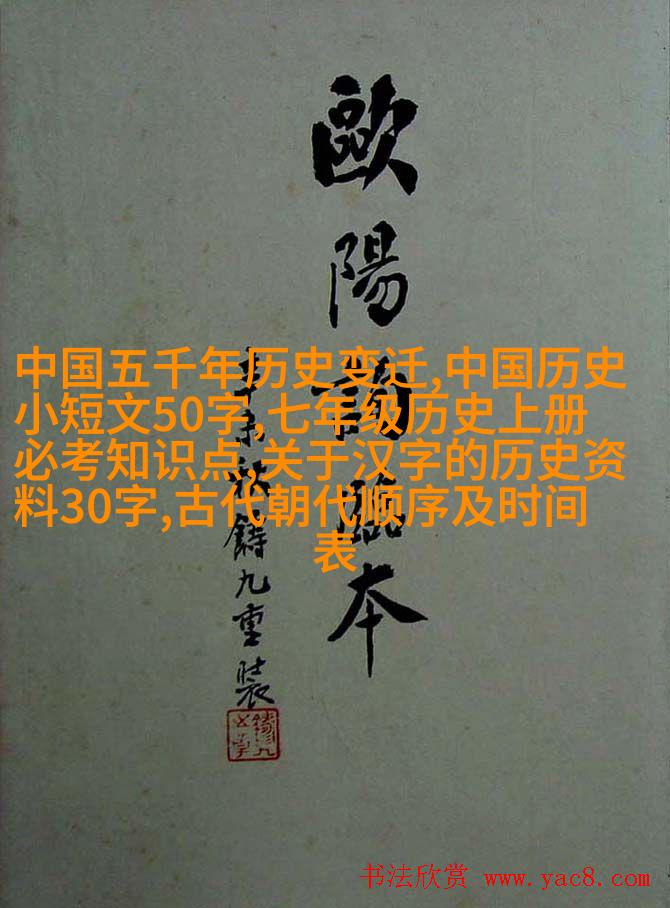 歐陽詢臨本
辛未秋鑄九重裝
中国五千年历史变迁,中国历史
小短文50字,七年级历史上册
必考知识点,关于汉字的历史资
料30字,古代朝代顺序及时间
表
书法欣赏 www.yac8.com